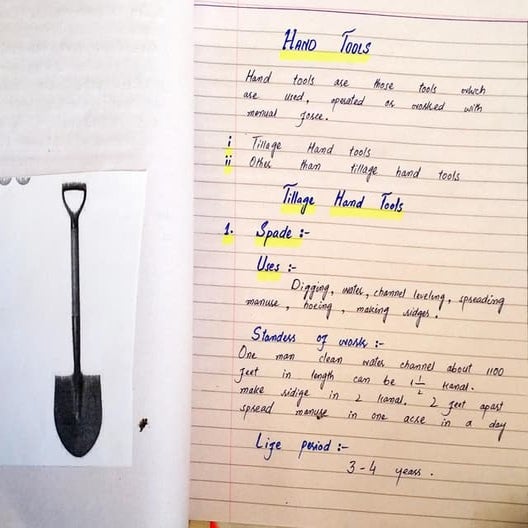 HAND TOOLS
Hand tools are those tools which
are used, operated or worked with
manual force.
i Tillage Hand tools
ii Other than tillage hand tools
Tillage Hand Tools
1. Spade :-
Uses :-
Digging, water, channel leveling, spreading
manure, hoeing, making ridges.
Standers of work :-
One man clean water channel about 1100
feet in length can be 1 1/2 kanal.
make ridige in 2 kanal. 2 feet apart
spread manure in one acre in a day
Life period :-
3-4 years.